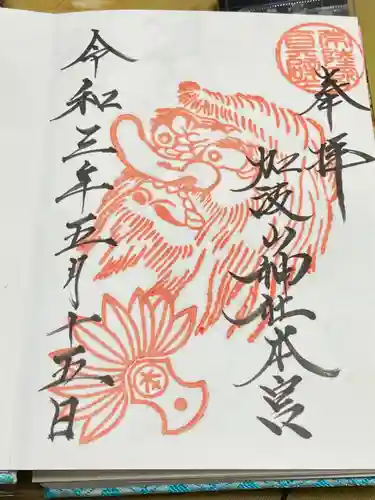 奉拝
加波山神社本宮
令和三年五月十五日